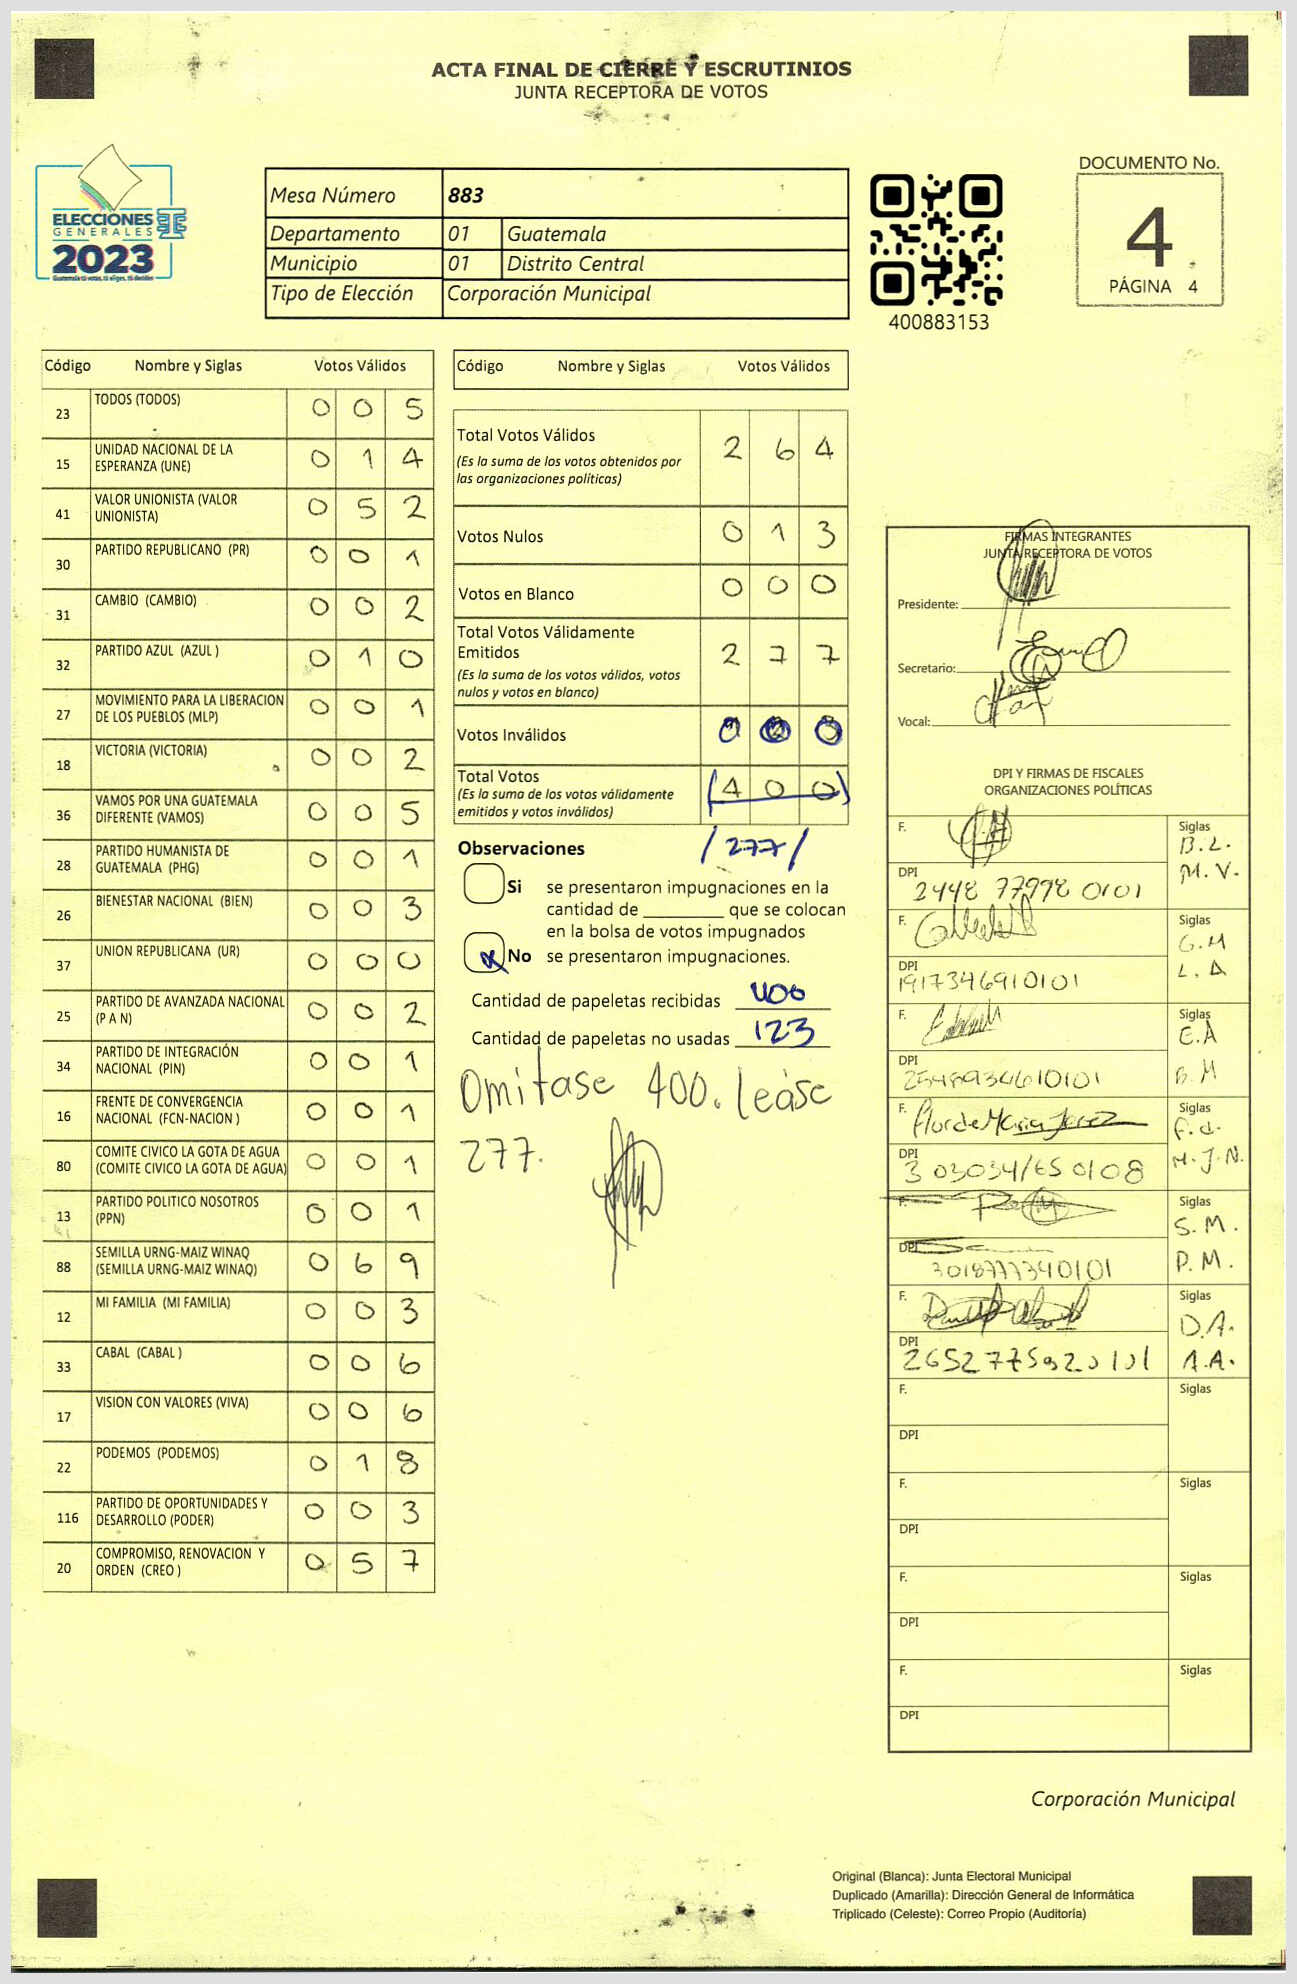 ACTA FINAL DE CIERRE Y ESCRUTINIOS
JUNTA RECEPTORA DE VOTOS
ELECCIONES
GENERALES
2023
Guatemala tú votas, tú eliges, tú decides
Mesa Número 883
Departamento 01 Guatemala
Municipio 01 Distrito Central
Tipo de Elección Corporación Municipal
400883153
DOCUMENTO No.
4
PÁGINA 4
Código Nombre y Siglas Votos Válidos
23 TODOS (TODOS) 0 0 5
15 UNIDAD NACIONAL DE LA ESPERANZA (UNE) 0 1 4
41 VALOR UNIONISTA (VALOR UNIONISTA) 0 5 2
30 PARTIDO REPUBLICANO (PR) 0 0 1
31 CAMBIO (CAMBIO) 0 0 2
32 PARTIDO AZUL (AZUL ) 0 1 0
27 MOVIMIENTO PARA LA LIBERACION DE LOS PUEBLOS (MLP) 0 0 1
18 VICTORIA (VICTORIA) 0 0 2
36 VAMOS POR UNA GUATEMALA DIFERENTE (VAMOS) 0 0 5
28 PARTIDO HUMANISTA DE GUATEMALA (PHG) 0 0 1
26 BIENESTAR NACIONAL (BIEN) 0 0 3
37 UNION REPUBLICANA (UR) 0 0 0
25 PARTIDO DE AVANZADA NACIONAL (P A N) 0 0 2
34 PARTIDO DE INTEGRACIÓN NACIONAL (PIN) 0 0 1
16 FRENTE DE CONVERGENCIA NACIONAL (FCN-NACION ) 0 0 1
80 COMITE CIVICO LA GOTA DE AGUA (COMITE CIVICO LA GOTA DE AGUA) 0 0 1
13 PARTIDO POLITICO NOSOTROS (PPN) 0 0 1
88 SEMILLA URNG-MAIZ WINAQ (SEMILLA URNG-MAIZ WINAQ) 0 6 9
12 MI FAMILIA (MI FAMILIA) 0 0 3
33 CABAL (CABAL ) 0 0 6
17 VISION CON VALORES (VIVA) 0 0 6
22 PODEMOS (PODEMOS) 0 1 8
116 PARTIDO DE OPORTUNIDADES Y DESARROLLO (PODER) 0 0 3
20 COMPROMISO, RENOVACION Y ORDEN (CREO ) 0 5 7
Código Nombre y Siglas Votos Válidos
Total Votos Válidos 2 6 4
(Es la suma de los votos obtenidos por
las organizaciones políticas)
Votos Nulos 0 1 3
Votos en Blanco 0 0 0
Total Votos Válidamente
Emitidos 2 7 7
(Es la suma de los votos válidos, votos
nulos y votos en blanco)
Votos Inválidos 0 0 0
Total Votos (4 0 0)
(Es la suma de los votos válidamente
emitidos y votos inválidos)
Observaciones /277/
Si se presentaron impugnaciones en la
cantidad de ________ que se colocan
en la bolsa de votos impugnados
x No se presentaron impugnaciones.
Cantidad de papeletas recibidas 400
Cantidad de papeletas no usadas 123
Omitase 400. leáse
277.
FIRMAS INTEGRANTES
JUNTA RECEPTORA DE VOTOS
Presidente:
Secretario:
Vocal:
DPI Y FIRMAS DE FISCALES
ORGANIZACIONES POLÍTICAS
F. Siglas B.L.
M.V.
DPI 2448 77998 0101
F. Siglas G.M
L.A
DPI 1917346910101
F. Siglas E.A
B.M
DPI 2548934610101
F. Flor de Maria Jerez Siglas F.d.
M.J.N.
DPI 3 03034165 0108
F. Siglas S.M.
P.M.
DPI
F. Siglas D.A.
A.A.
DPI
F. Siglas
DPI
F. Siglas
DPI
F. Siglas
DPI
F. Siglas
DPI
Corporación Municipal
Original (Blanca): Junta Electoral Municipal
Duplicado (Amarilla): Dirección General de Informática
Triplicado (Celeste): Correo Propio (Auditoría)